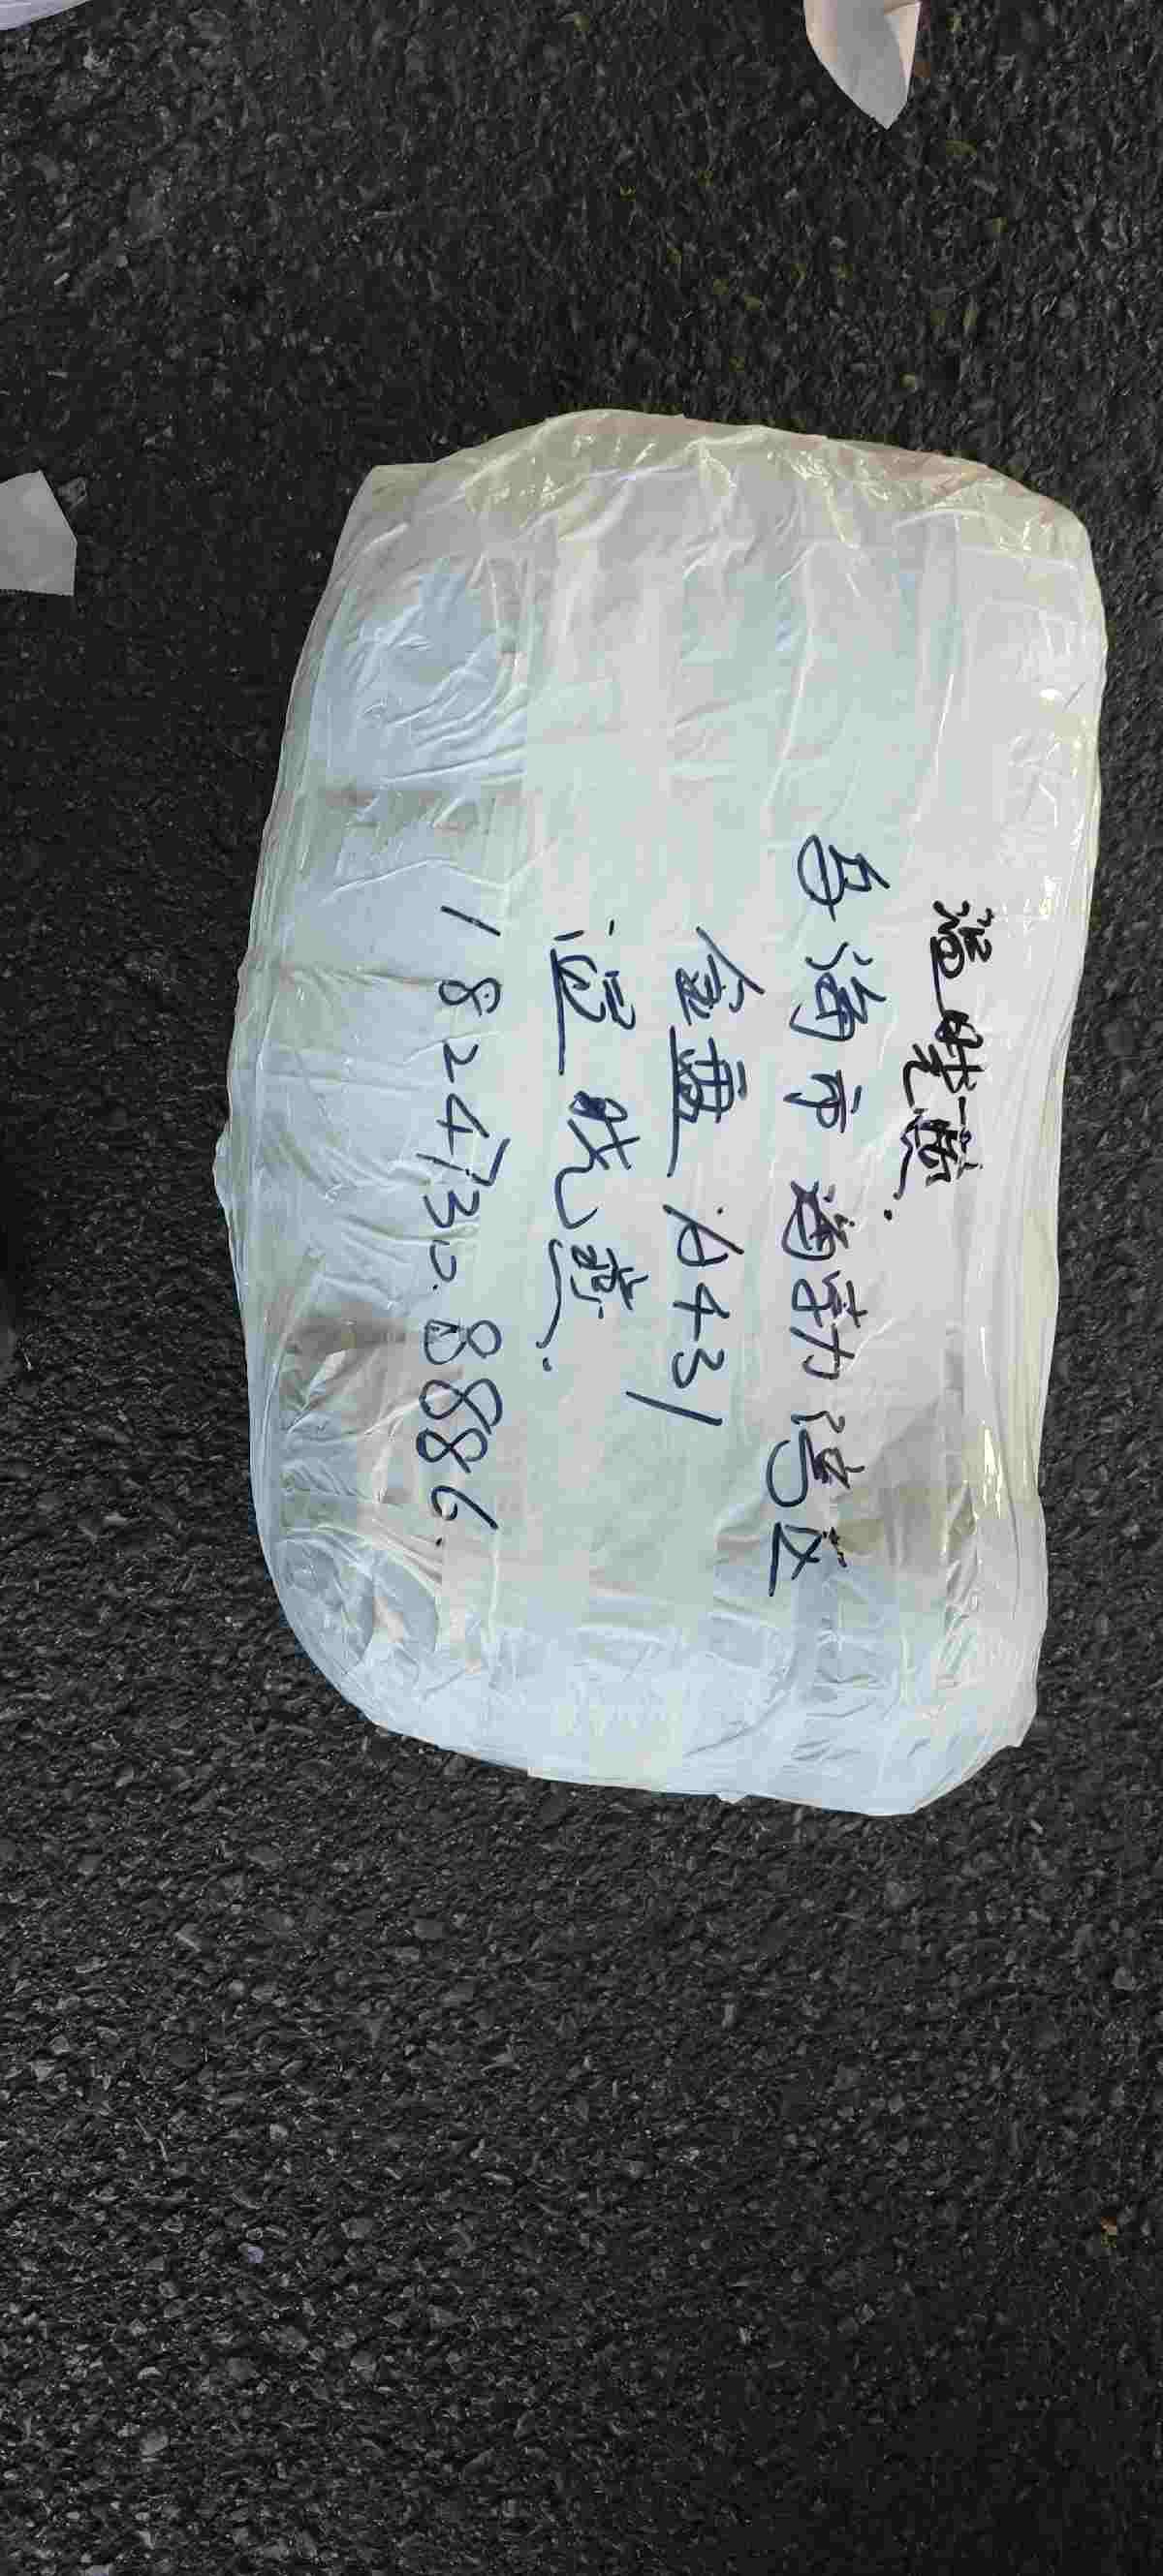 温晓燕.
乌海市海勃湾区
金惠A431
温晓燕.
1824730.8886.